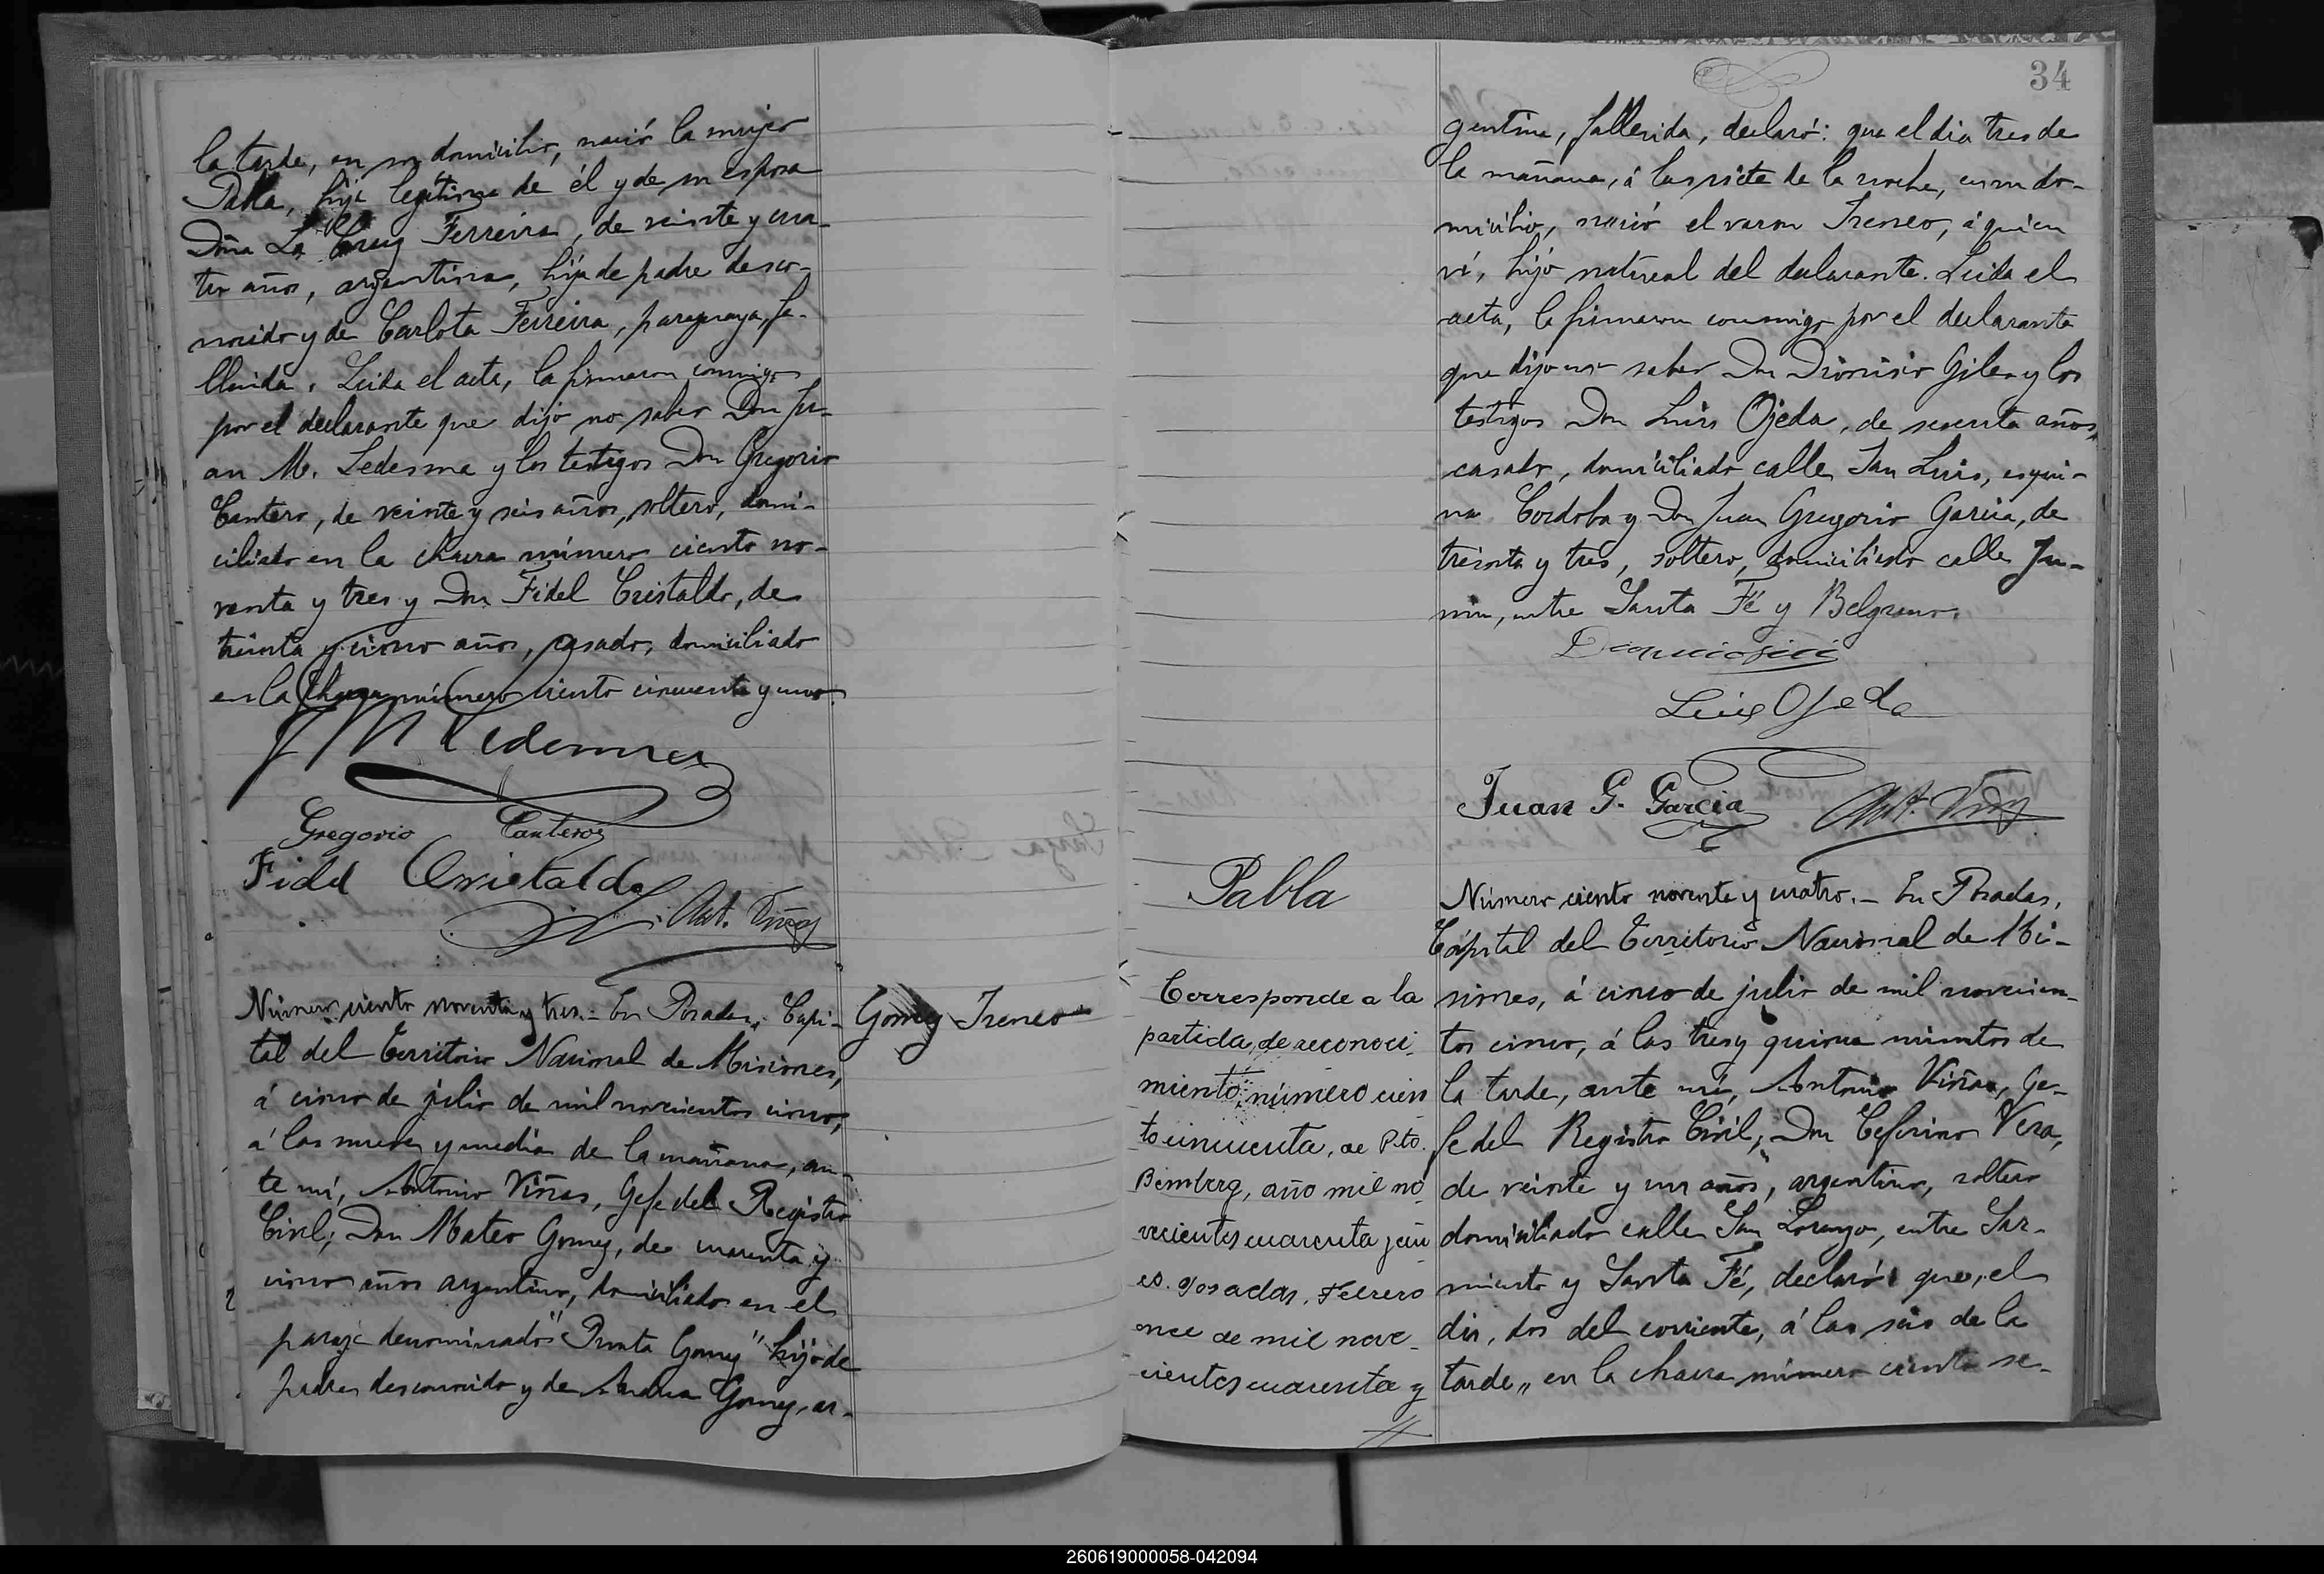 la tarde, en su domicilio, nació la mujer
Pabla, hija legítima de él y de su esposa
Doña La Cruz Ferreira, de veinte y cua-
tro años, argentina, hija de padre desco-
nocido y de Carlota Ferreira, paraguaya, fa-
llecida. Leida el acta, la firmaron conmigo
por el declarante que dijo no saber Don Ju-
an M. Ledesma y los testigos Don Gregorio
Cantero, de veinte y seis años, soltero, domi-
ciliado en la chacra número ciento no-
venta y tres y Don Fidel Cristaldo, de
treinta y cinco años, casado, domiciliado
en la chacra número ciento cincuenta y uno.
J M Ledesma
Gregorio Canteros
Fidel Cristaldo
Ant. Viñas
Número ciento noventa y tres.- En Posadas, Capi-
tal del Territorio Nacional de Misiones,
á cinco de julio de mil novecientos cinco,
á las nueve y media de la mañana, an-
te mí, Antonio Viñas, Gefe del Registro
Civil; Don Mateo Gomez, de cuarenta y
cinco años argentino, domiciliado en el
paraje denominado "Punta Gomez" hijo de
padre desconocido y de Gomez, ar-
Gomez Ireneo
34
gentina, fallecida, declaró: que el dia tres de
la mañana, á las siete de la noche, en su do-
micilio, nació el varon Ireneo, á quien
ví, hijo natural del declarante. Leida el
acta, la firmaron conmigo por el declarante
que dijo no saber Don Dionisio Giles y los
testigos Don Luis Ojeda, de sesenta años,
casado, domiciliado calle San Luis, esqui-
na Cordoba y Don Juan Gregorio Garcia, de
treinta y tres, soltero, domiciliado calle Ju-
nin, entre Santa Fé y Belgrano.
Luis Ojeda
Juan G. Garcia Ant. Viñas
Pabla
Corresponde a la
partida de reconoci-
miento número cien
to cincuenta, de Pto.
Bemberg, año mil no
vecientos cuarenta y cin
co. Posadas, Febrero
once de mil nove-
cientos cuarenta y
Número ciento noventa y cuatro.- En Posadas,
Capital del Territorio Nacional de Mi-
siones, á cinco de julio de mil novecien-
tos cinco, á las tres y quince minutos de
la tarde, ante mí, Antonio Viñas, Ge-
fe del Registro Civil; Don Ceferino Vera,
de veinte y un años, argentino, soltero
domiciliado calle San Lorenzo, entre Sar-
miento y Santa Fé, declaró que, el
dia, dos del corriente, á las seis de la
tarde, en la chacra número ciento se-
260619000058-042094